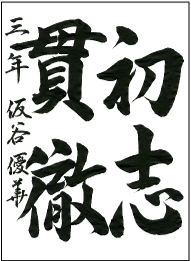 初志
貫徹
三年 仮谷優華